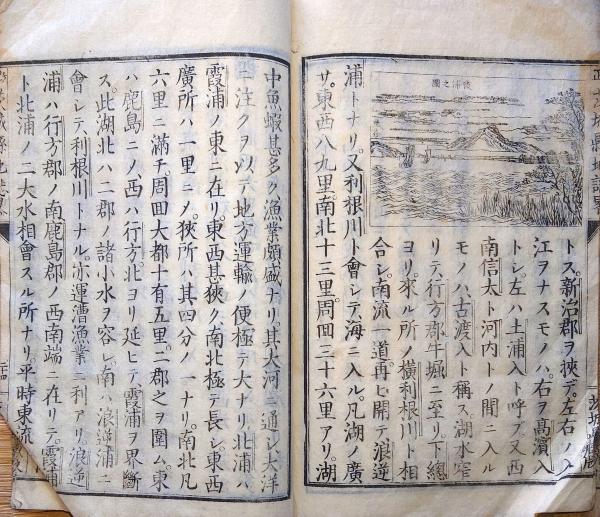 霞浦之圖
トス。新治郡ヲ挾デ。左右ノ入
江ヲナスモノハ。右ヲ高濱入
トシ。左ハ土浦入ト呼ブ。又西
南信太ト河内トノ間ニ入ル
モノハ。古渡入ト稱ス。湖水窄
リテ。行方郡牛堀ニ至リ。下總
ヨリ。來ル所ノ横利根川ト相
合シ。南流一道。再ヒ開テ浪逆
浦トナリ。又利根川ト會シテ。海ニ入ル。凡湖ノ廣
サ。東西八九里。南北十三里。周回三十六里アリ。湖
中魚蝦甚多ク。漁業頗盛ナリ。其大河ニ通シ。大洋
ニ注クヲ以テ。地方運輸ノ便極テ大ナリ。北浦ハ
霞浦ノ東ニ在リ。東西甚狹ク。南北極テ長シ。東西
廣所ハ一里ニシテ。狹所ハ其四分ノ一ナリ。南北凡
六里ニ滿チ。周回大都十有五里。二郡之ヲ圍ム。東
ハ鹿島ニシテ。西ハ行方。北ヨリ延ヒテ。霞浦ヲ界斷
ス。此湖北ハ二郡ノ諸小水ヲ容レ。南ハ浪逆浦ニ
會シテ。利根川トナル。亦運漕漁業ニ利アリ。浪逆
浦ハ行方郡ノ南。鹿島郡ノ西南端ニ在リテ。霞浦
ト北浦ノ二大水相會スル所ナリ。平時東流